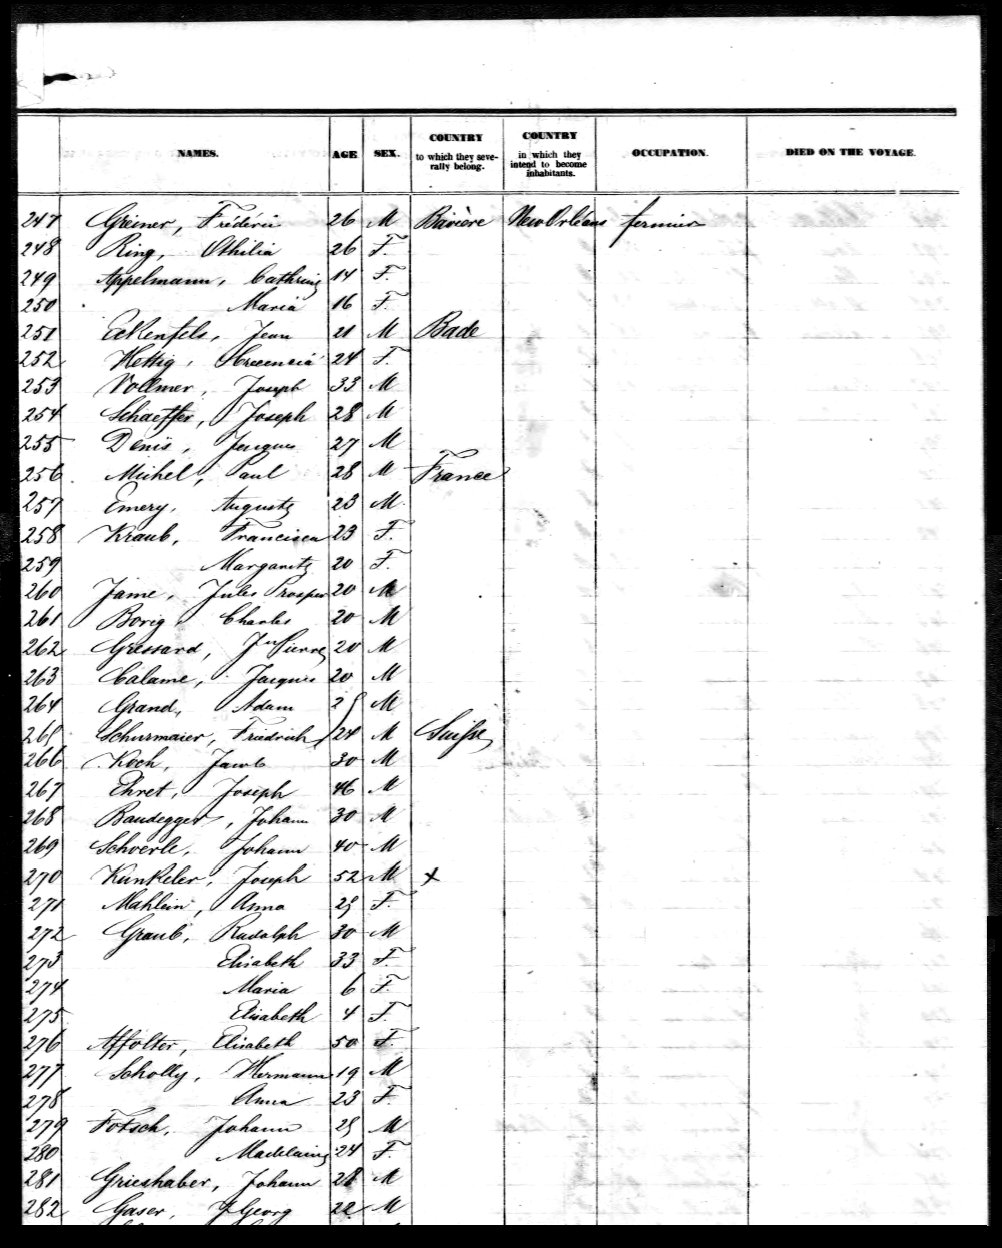 NAMES. AGE SEX. COUNTRY to which they severally belong. COUNTRY in which they intend to become inhabitants. OCCUPATION. DIED ON THE VOYAGE.
247 Greiner, Fréderic 26 M Bavière New Orleans fermier
248 Ring, Othilia 26 F.
249 Appelmann, Cathrine 14 F.
250 Maria 16 F.
251 Eckenfels, Jean 21 M Bade
252 Hettig, Crecencia 24 F.
253 Vollmer, Joseph 33 M
254 Schaeffer, Joseph 28 M
255 Denis, Jacques 27 M
256 Michel, Paul 28 M France
257 Emery, Auguste 23 M.
258 Kraub, Francisca 23 F.
259 Margarete 20 F.
260 Jame, Jules Prosper 20 M
261 Borig Charles 20 M
262 Gressard, Jn Pierre 20 M
263 Calame, Jacques 20 M
264 Grand, Adam 25 M
265 Schurmaier, Friedrich 24 M Suisse
266 Koch, Jacob 30 M
267 Ehret, Joseph 46 M
268 Baudegger, Johann 30 M
269 Schoerle, Johann 40 M
270 Kunkeler, Joseph 52 M x
271 Mahlein, Anna 25 F.
272 Graub, Rudolph 30 M
273 Elisabeth 33 F.
274 Maria 6 F.
275 Elisabeth 4 F.
276 Affolter, Elisabeth 50 F.
277 Scholly, Hermann 19 M
278 Anna 23 F.
279 Fotsch, Johann 25 M
280 Madelaine 24 F.
281 Grieshaber, Johann 28 M
282 Gaser, J Georg 22 M